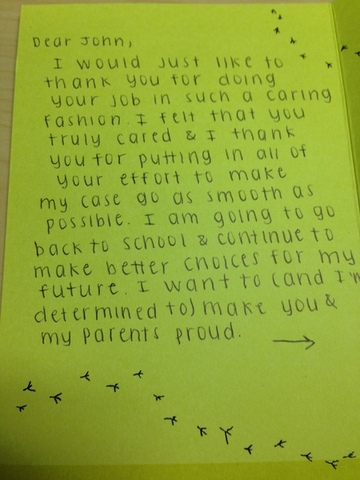 Dear John,
I would just like to
thank you for doing
your job in such a caring
fashion. I felt that you
truly cared & I thank
you for putting in all of
your effort to make
my case go as smooth as
possible. I am going to go
back to school & continue to
make better choices for my
future. I want to (and I'm
determined to) make you &
my parents proud. →